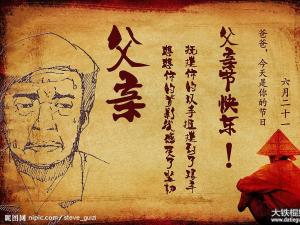 父亲
父亲节快乐！
抚摸你的双手
想想你的背影我感受了坚韧
爸爸，今天是你的节日
六月二十一
昵图网 nipic.com/steve_guzi
大铁棍
www.datieg